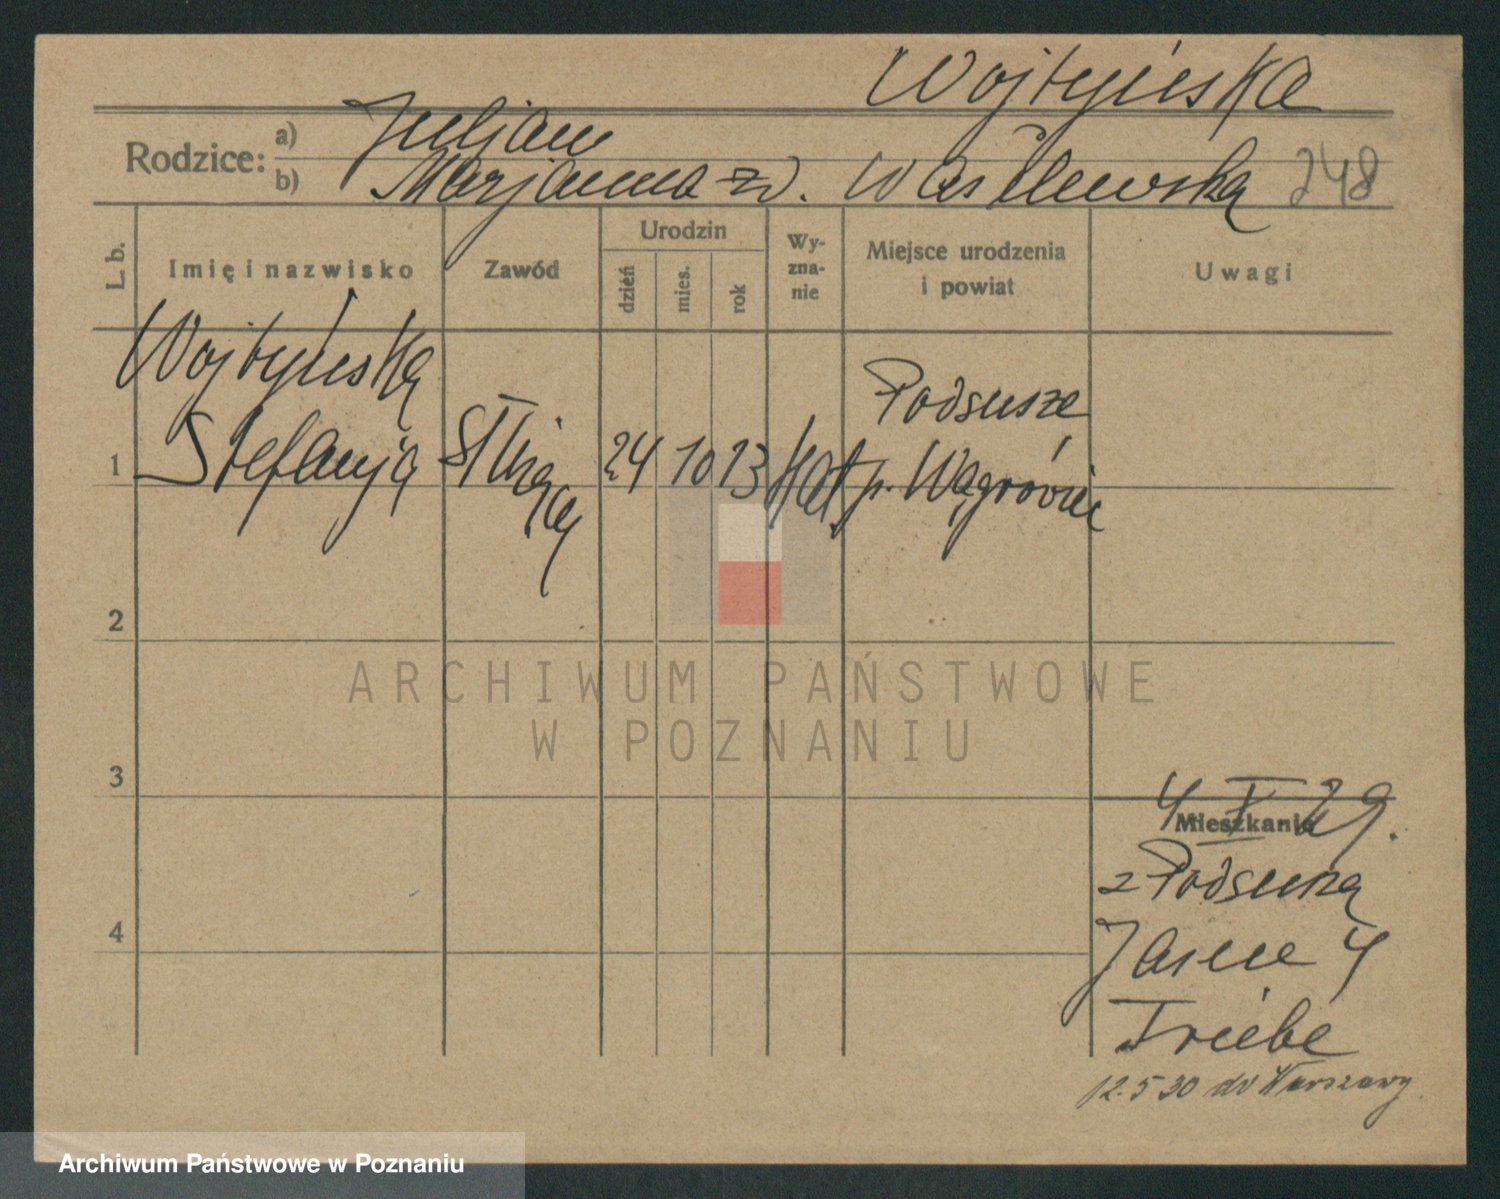 Wojtyńska
Rodzice: a) Juljan
b) Marjanna z d. Waśilewska 248
L. b. Imię i nazwisko Zawód Urodzin dzień mies. rok Wyzna-nie Miejsce urodzenia i powiat Uwagi
Wojtyńska Podsusze
1 Stefanja Służąca 24 10 13 kat p. Wągrówiec
2
ARCHIWUM PAŃSTWOWE
W POZNANIU
3
4 X 29.
Mieszkanie
z Podsusza
4
Jasna 4
Triebe
12.5 30 do Warszawy.
Archiwum Państwowe w Poznaniu